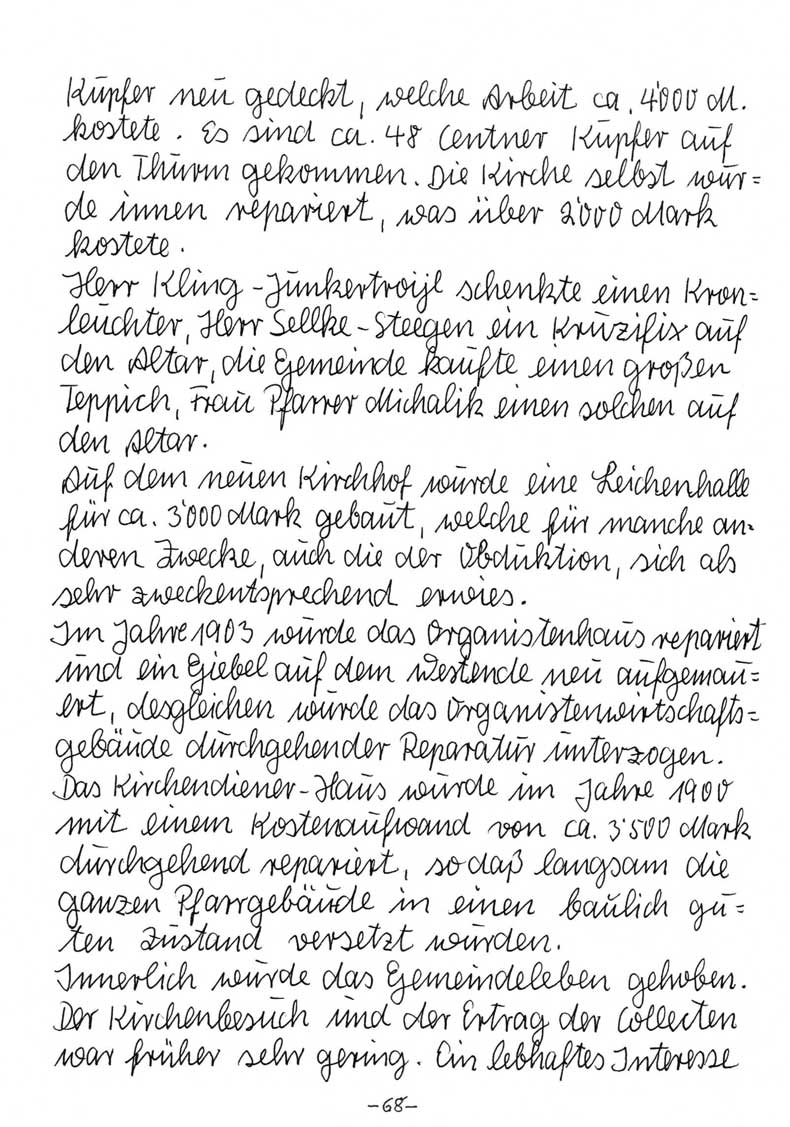 Kupfer neu gedeckt, welche Arbeit ca. 4'000 M.
kostete. Es sind ca. 48 Centner Kupfer auf
den Thurm gekommen. Die Kirche selbst wur=
de innen repariert, was über 2'000 Mark
kostete.
Herr Kling-Junkertroijl schenkte einen Kron=
leuchter, Herr Sellke-Steegen ein Kruzifix auf
den Altar, die Gemeinde kaufte einen großen
Teppich, Frau Pfarrer Michalik einen solchen auf
den Altar.
Auf dem neuen Kirchhof wurde eine Leichenhalle
für ca. 3'000 Mark gebaut, welche für manche an=
deren Zwecke, auch die der Obduktion, sich als
sehr zweckentsprechend erwies.
Im Jahre 1903 wurde das Organistenhaus repariert
und ein Giebel auf dem Westende neu aufgemau=
ert, desgleichen wurde das Organistenwirtschafts=
gebäude durchgehender Reparatur unterzogen.
Das Kirchendiener-Haus wurde im Jahre 1900
mit einem Kostenaufwand von ca. 3'500 Mark
durchgehend repariert, so daß langsam die
ganzen Pfarrgebäude in einen baulich gu=
ten Zustand versetzt wurden.
Innerlich wurde das Gemeindeleben gehoben.
Der Kirchenbesuch und der Ertrag der Collecten
war früher sehr gering. Ein lebhaftes Interesse
-68-